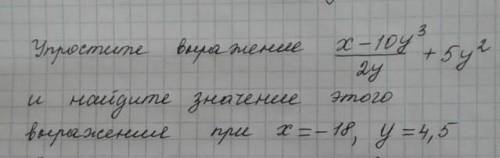 Упростите выражение (x-10y³)/(2y) + 5y²
и найдите значение этого
выражения при x=-18, y=4,5